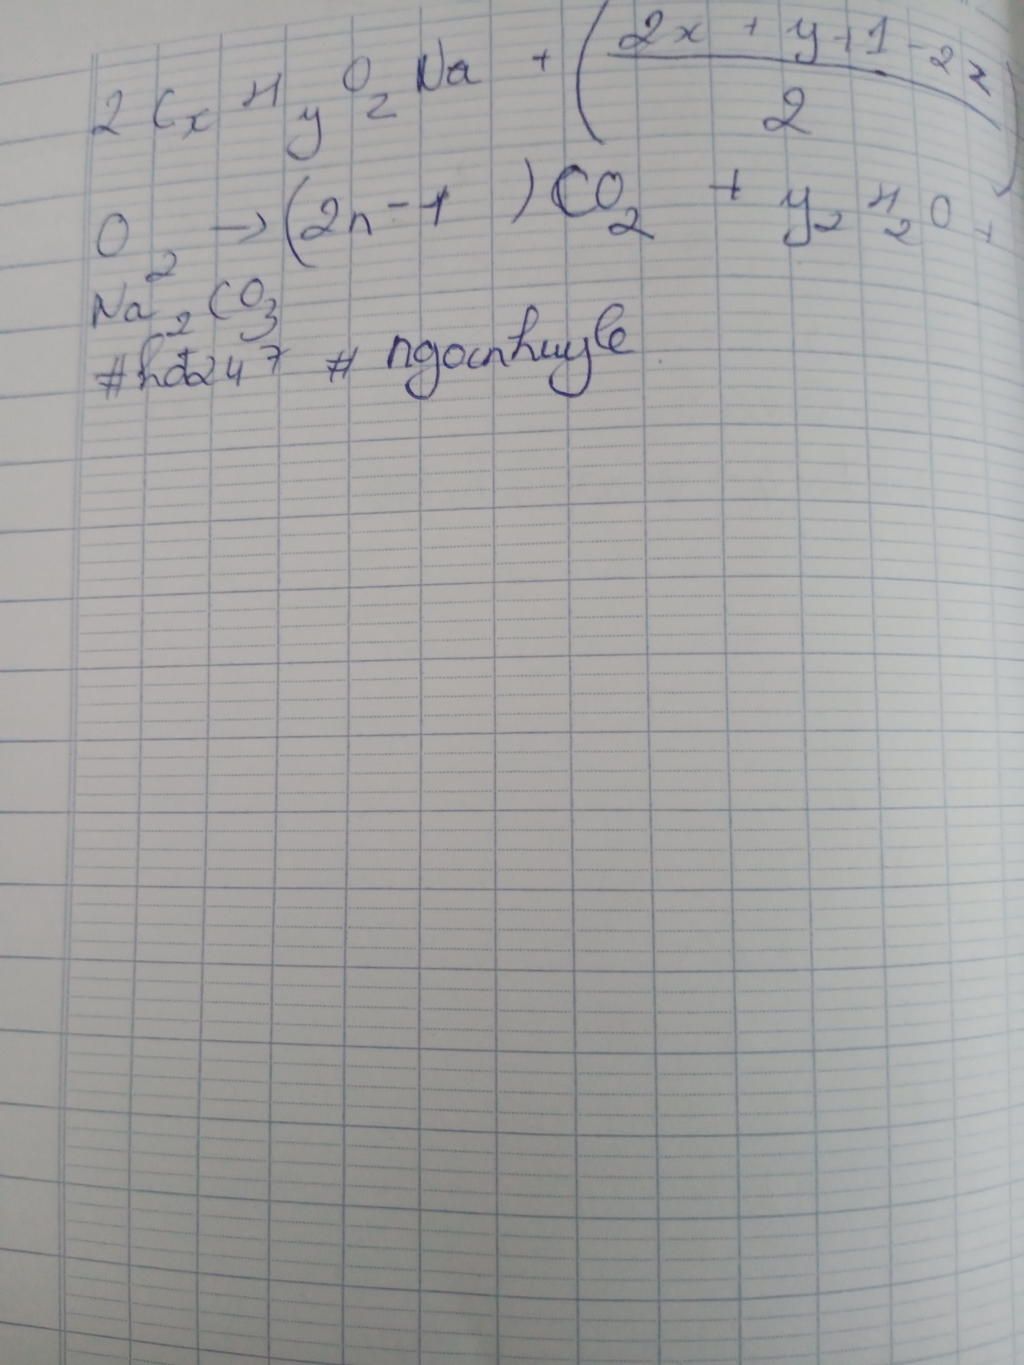 2 CxHyO2Na + (2x + y + 1 - 2z / 2)
O2 → (2n - 1) CO2 + y2 H2O +
Na2CO3
#hđ247 # ngocnhuyle